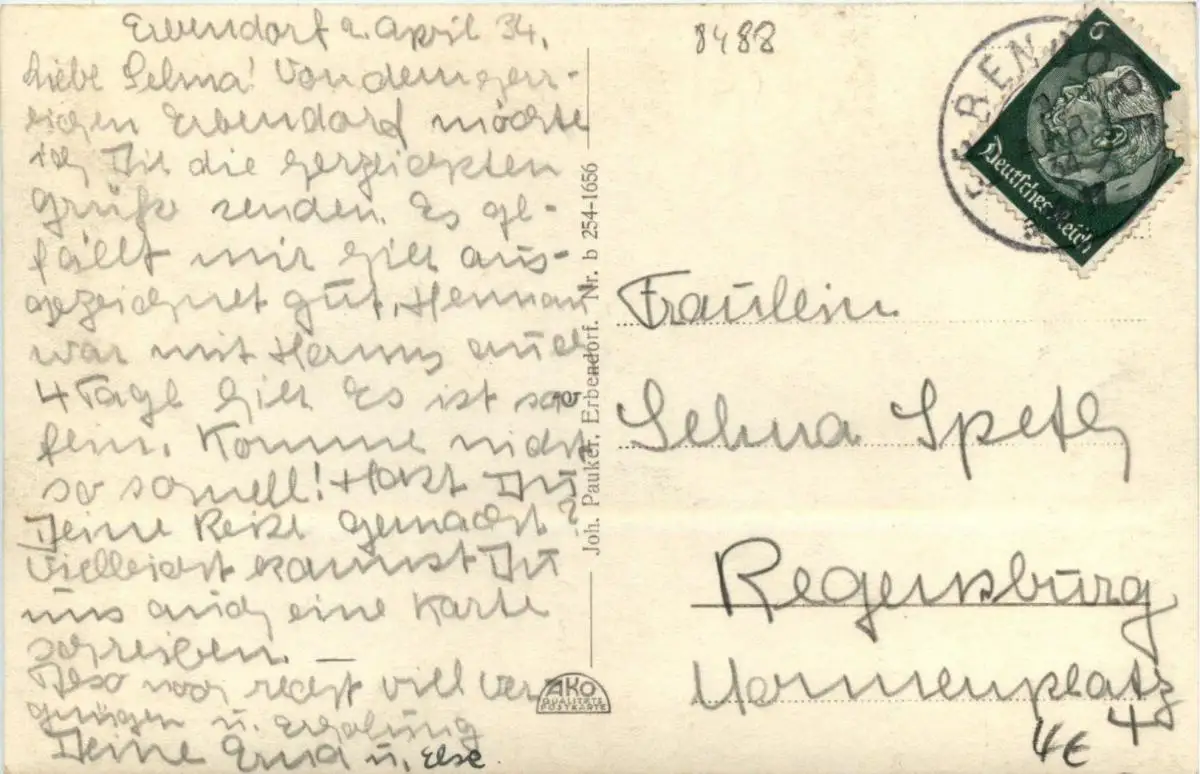 Erbendorf 2. April 34.
Liebe Selma! Von dem herr-
lichen Erbendorf möchte
ich Dir die herzlichsten
Grüße senden. Es ge-
fällt mir hier aus-
gezeichnet gut. Hermann
war mit Hanns auch
4 Tage hier. Es ist so
fein. Komme nicht
so schnell! Hast Du
Deine Reise gemacht?
Vielleicht kannst Du
uns auch eine Karte
schreiben.
Also noch recht viel Ver
gnügen u. Erholung
Deine Erna u. Else.
Joh. Pauker, Erbendorf. Nr. b 254-1656
AKO
QUALITÄTS
POSTKARTE
8488
ERBENDORF
6
Deutsches Reich
Fräulein
Selma
Regensburg
4
4€